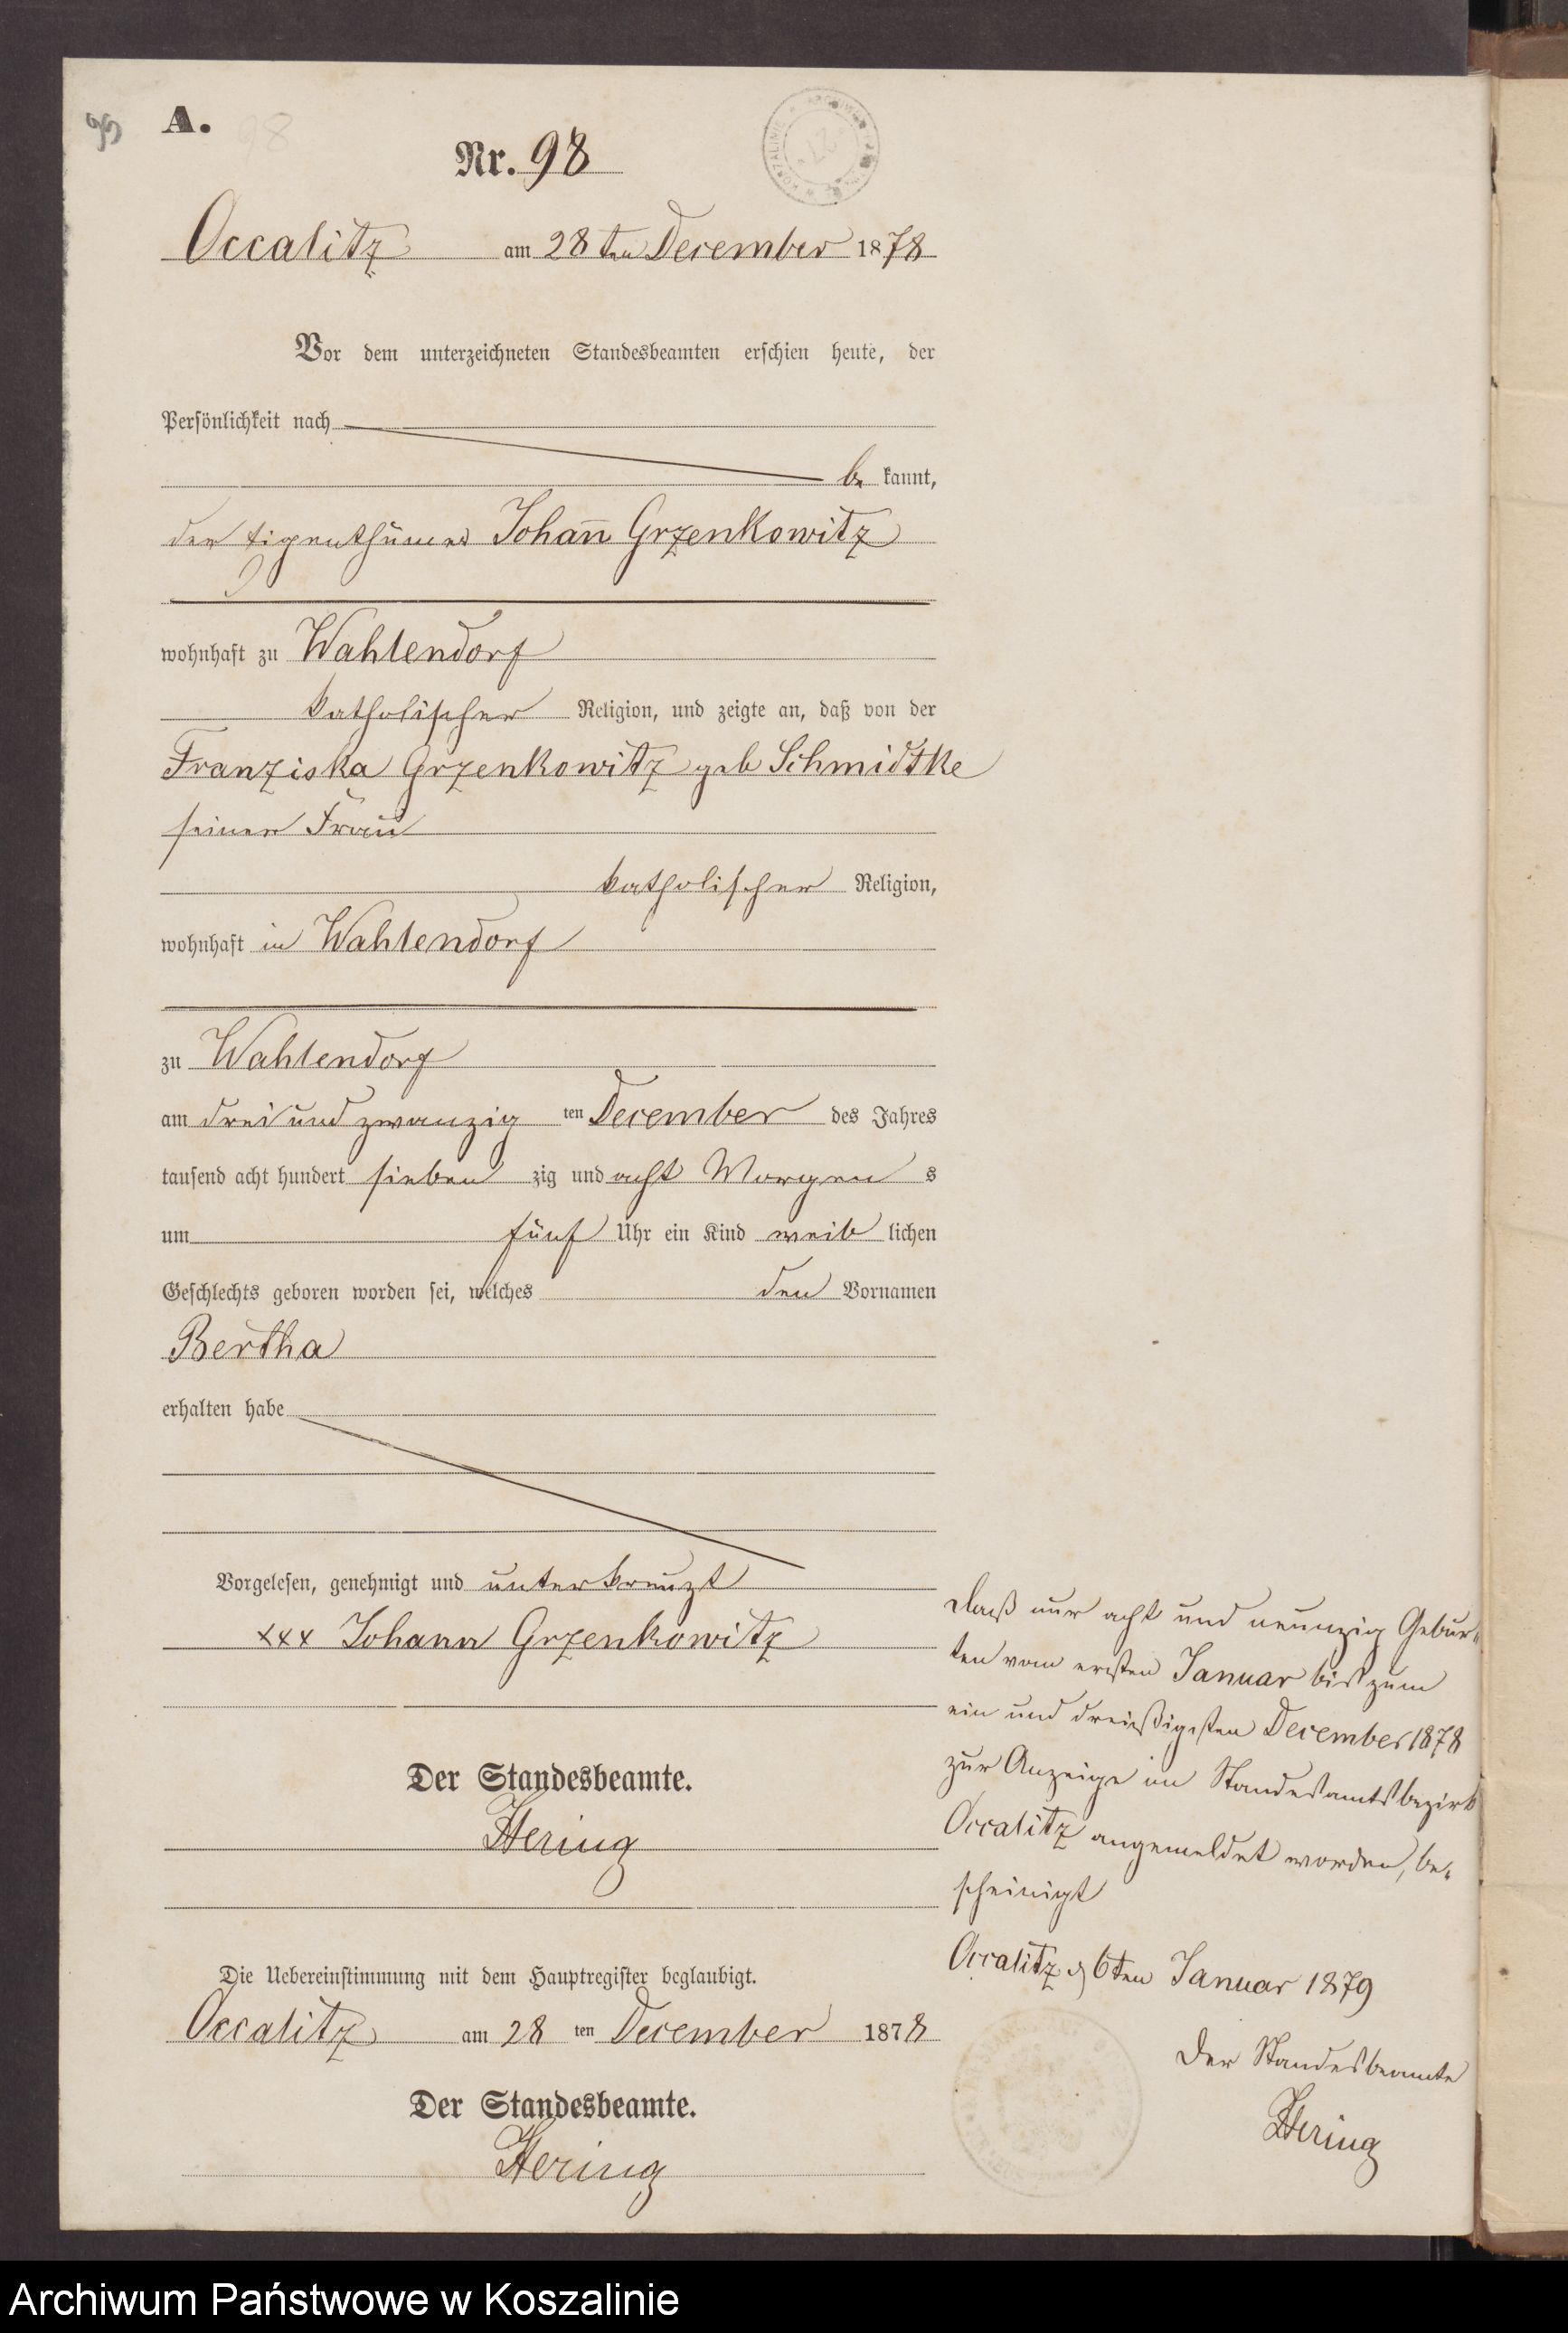 A.
98
Nr. 98
Occalitz am 28ten December 1878
Vor dem unterzeichneten Standesbeamten erschien heute, der
Persönlichkeit nach
be kannt,
der Eigenthümer Johañ Grzenkowitz
wohnhaft zu Wahlendorf
katholischer Religion, und zeigte an, daß von der
Franziska Grzenkowitz geb Schmidtke
seiner Frau
katholischer Religion,
wohnhaft in Wahlendorf
zu Wahlendorf
am drei und zwanzig ten December des Jahres
tausend acht hundert sieben zig und acht Morgen s
um fünf Uhr ein Kind weib lichen
Geschlechts geboren worden sei, welches den Vornamen
Bertha
erhalten habe
Vorgelesen, genehmigt und unterkreuzt
xxx Johann Grzenkowitz
Der Standesbeamte.
Hering
Die Uebereinstimmung mit dem Hauptregister beglaubigt.
Occalitz am 28 ten December 1878
Der Standesbeamte.
Hering
Daß nur acht und neunzig Gebur-
ten vom ersten Januar bis zum
ein und dreißigsten December 1878
zur Anzeige im Standesamtsbezirk
Occalitz angemeldet worden, be-
scheinigt
Occalitz d 6ten Januar 1879
Der Standesbeamte
Hering
Archiwum Państwowe w Koszalinie